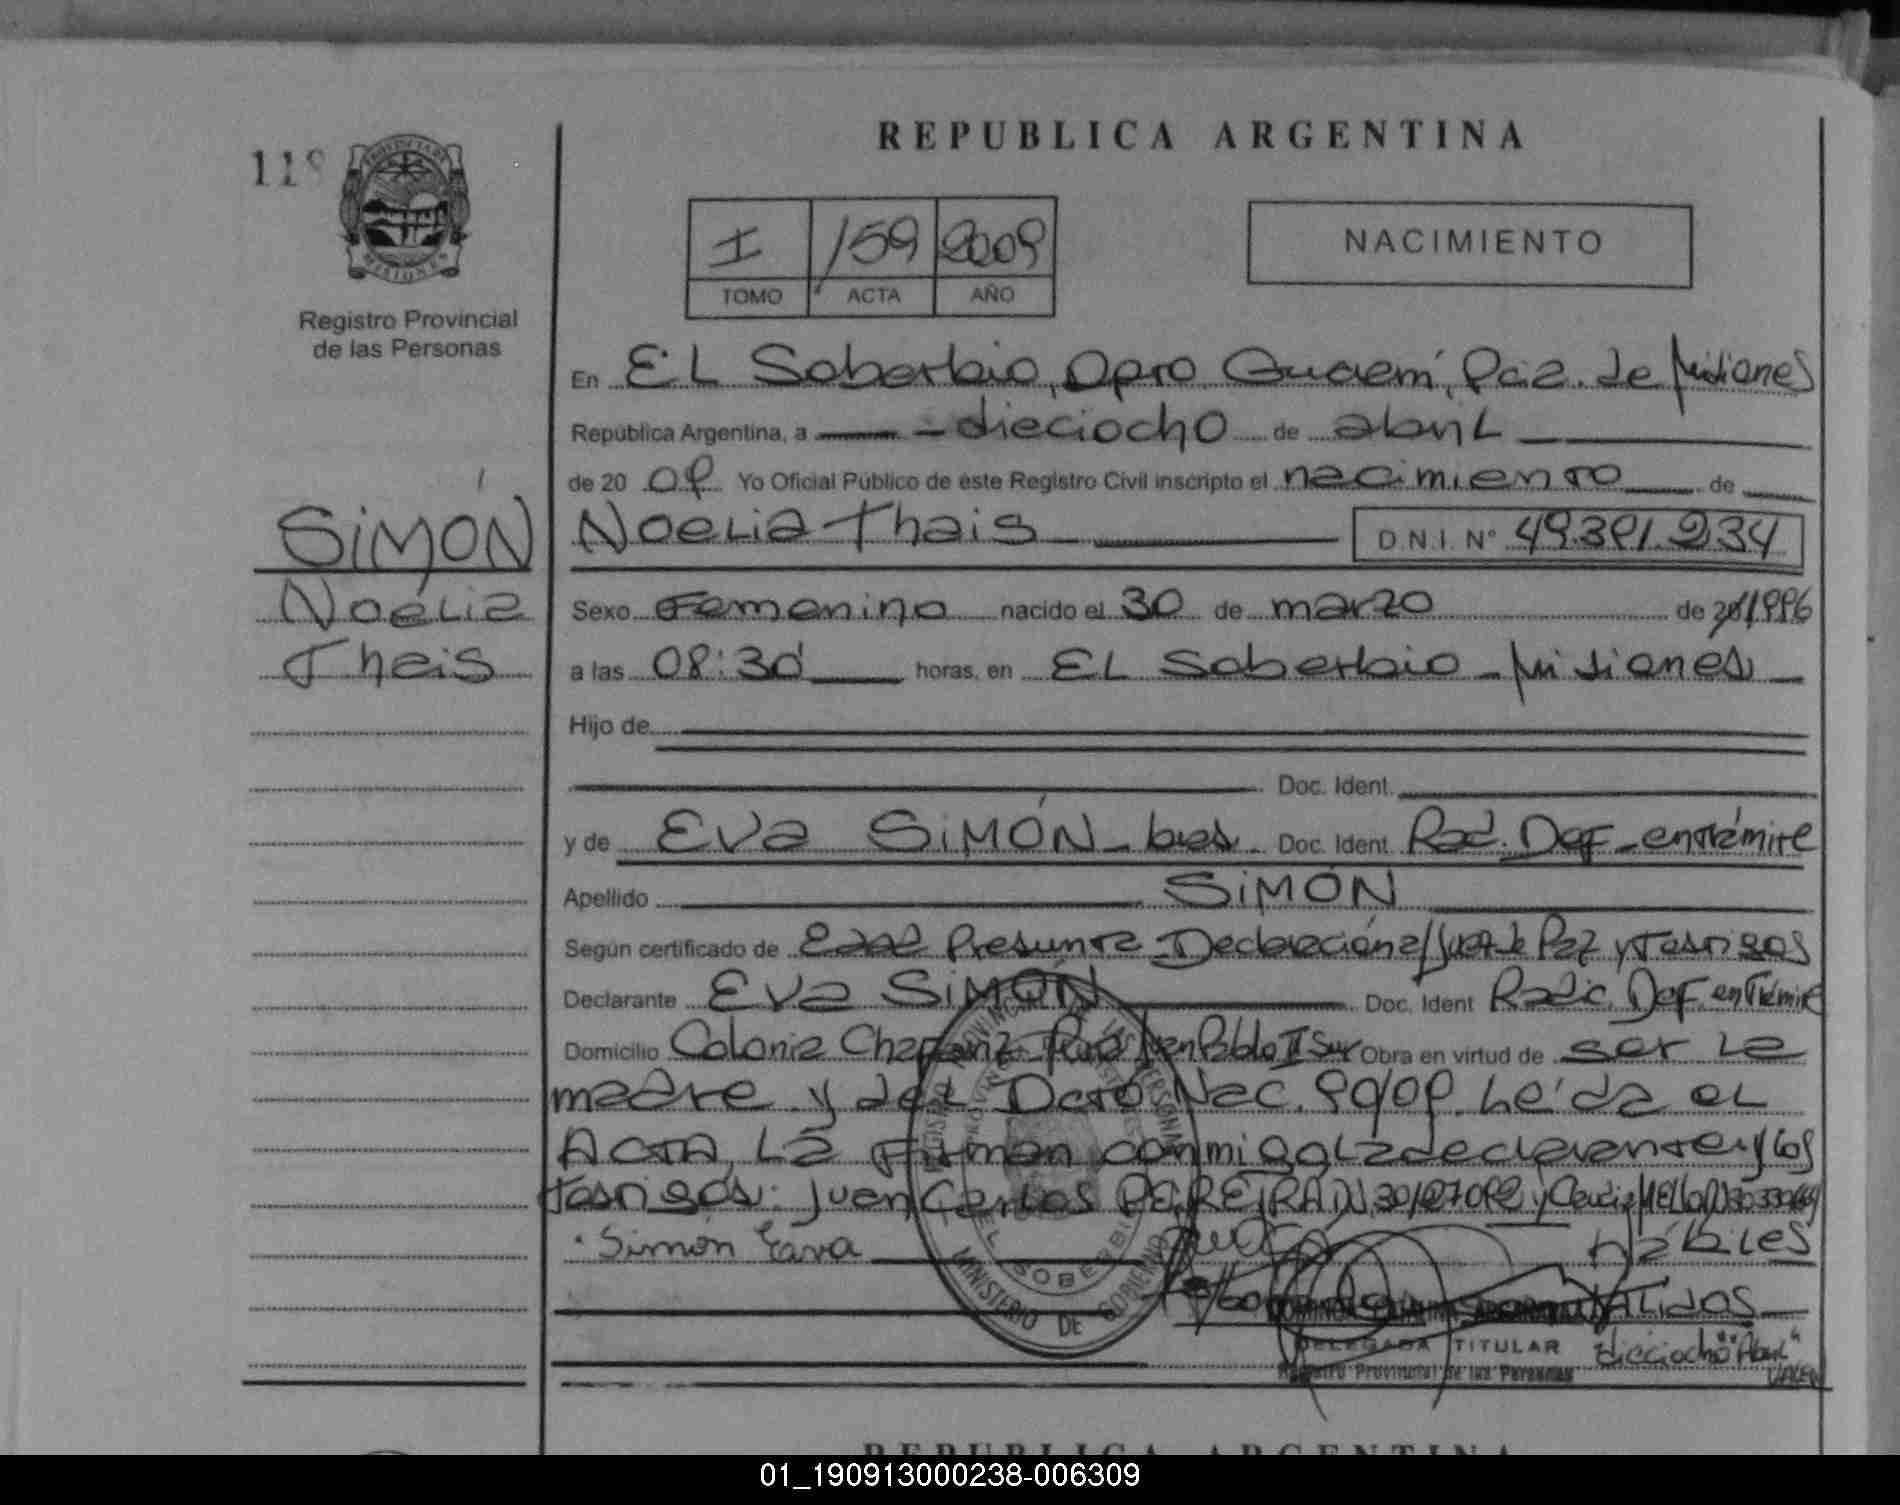 REPUBLICA ARGENTINA
118
PROVINCIA DE
MISIONES
Registro Provincial
de las Personas
I 159 2009
TOMO ACTA AÑO
NACIMIENTO
En EL Soberbio, Dpto Guaraní, Pcia. de Misiones
República Argentina, a dieciocho de abril
de 20 09 Yo Oficial Público de este Registro Civil inscripto el nacimiento de
SIMÓN
Noelia
Thais
Noelia Thais D.N.I. N° 49.391.234
Sexo Femenino nacido el 30 de marzo de 20/1996
a las 08:30' horas, en EL Soberbio - Misiones
Hijo de
Doc. Ident.
y de Eva SIMÓN Doc. Ident. Rad. Def. en trámite
Apellido SIMÓN
Según certificado de Edad Presunta Declaración a/Juez de Paz y testigos
Declarante Eva SIMÓN Doc. Ident Radic. Def. en trámite
Domicilio Colonia Chafariz Ruta Juan Pablo II Sur Obra en virtud de ser la
madre y del Dcto Nac. 90/09. Leída el
ACTA, La Firman conmigo la declarante y los
testigos: Juan Carlos PEREIRA
Simon Eava hábiles
validos
DELEGADA TITULAR
Registro Provincial de las Personas
dieciocho "Abril"
VALEN
REGISTRO PROVINCIAL DE LAS PERSONAS
EL SOBERBIO
MINISTERIO DE GOBIERNO
REPUBLICA ARGENTINA
01_190913000238-006309